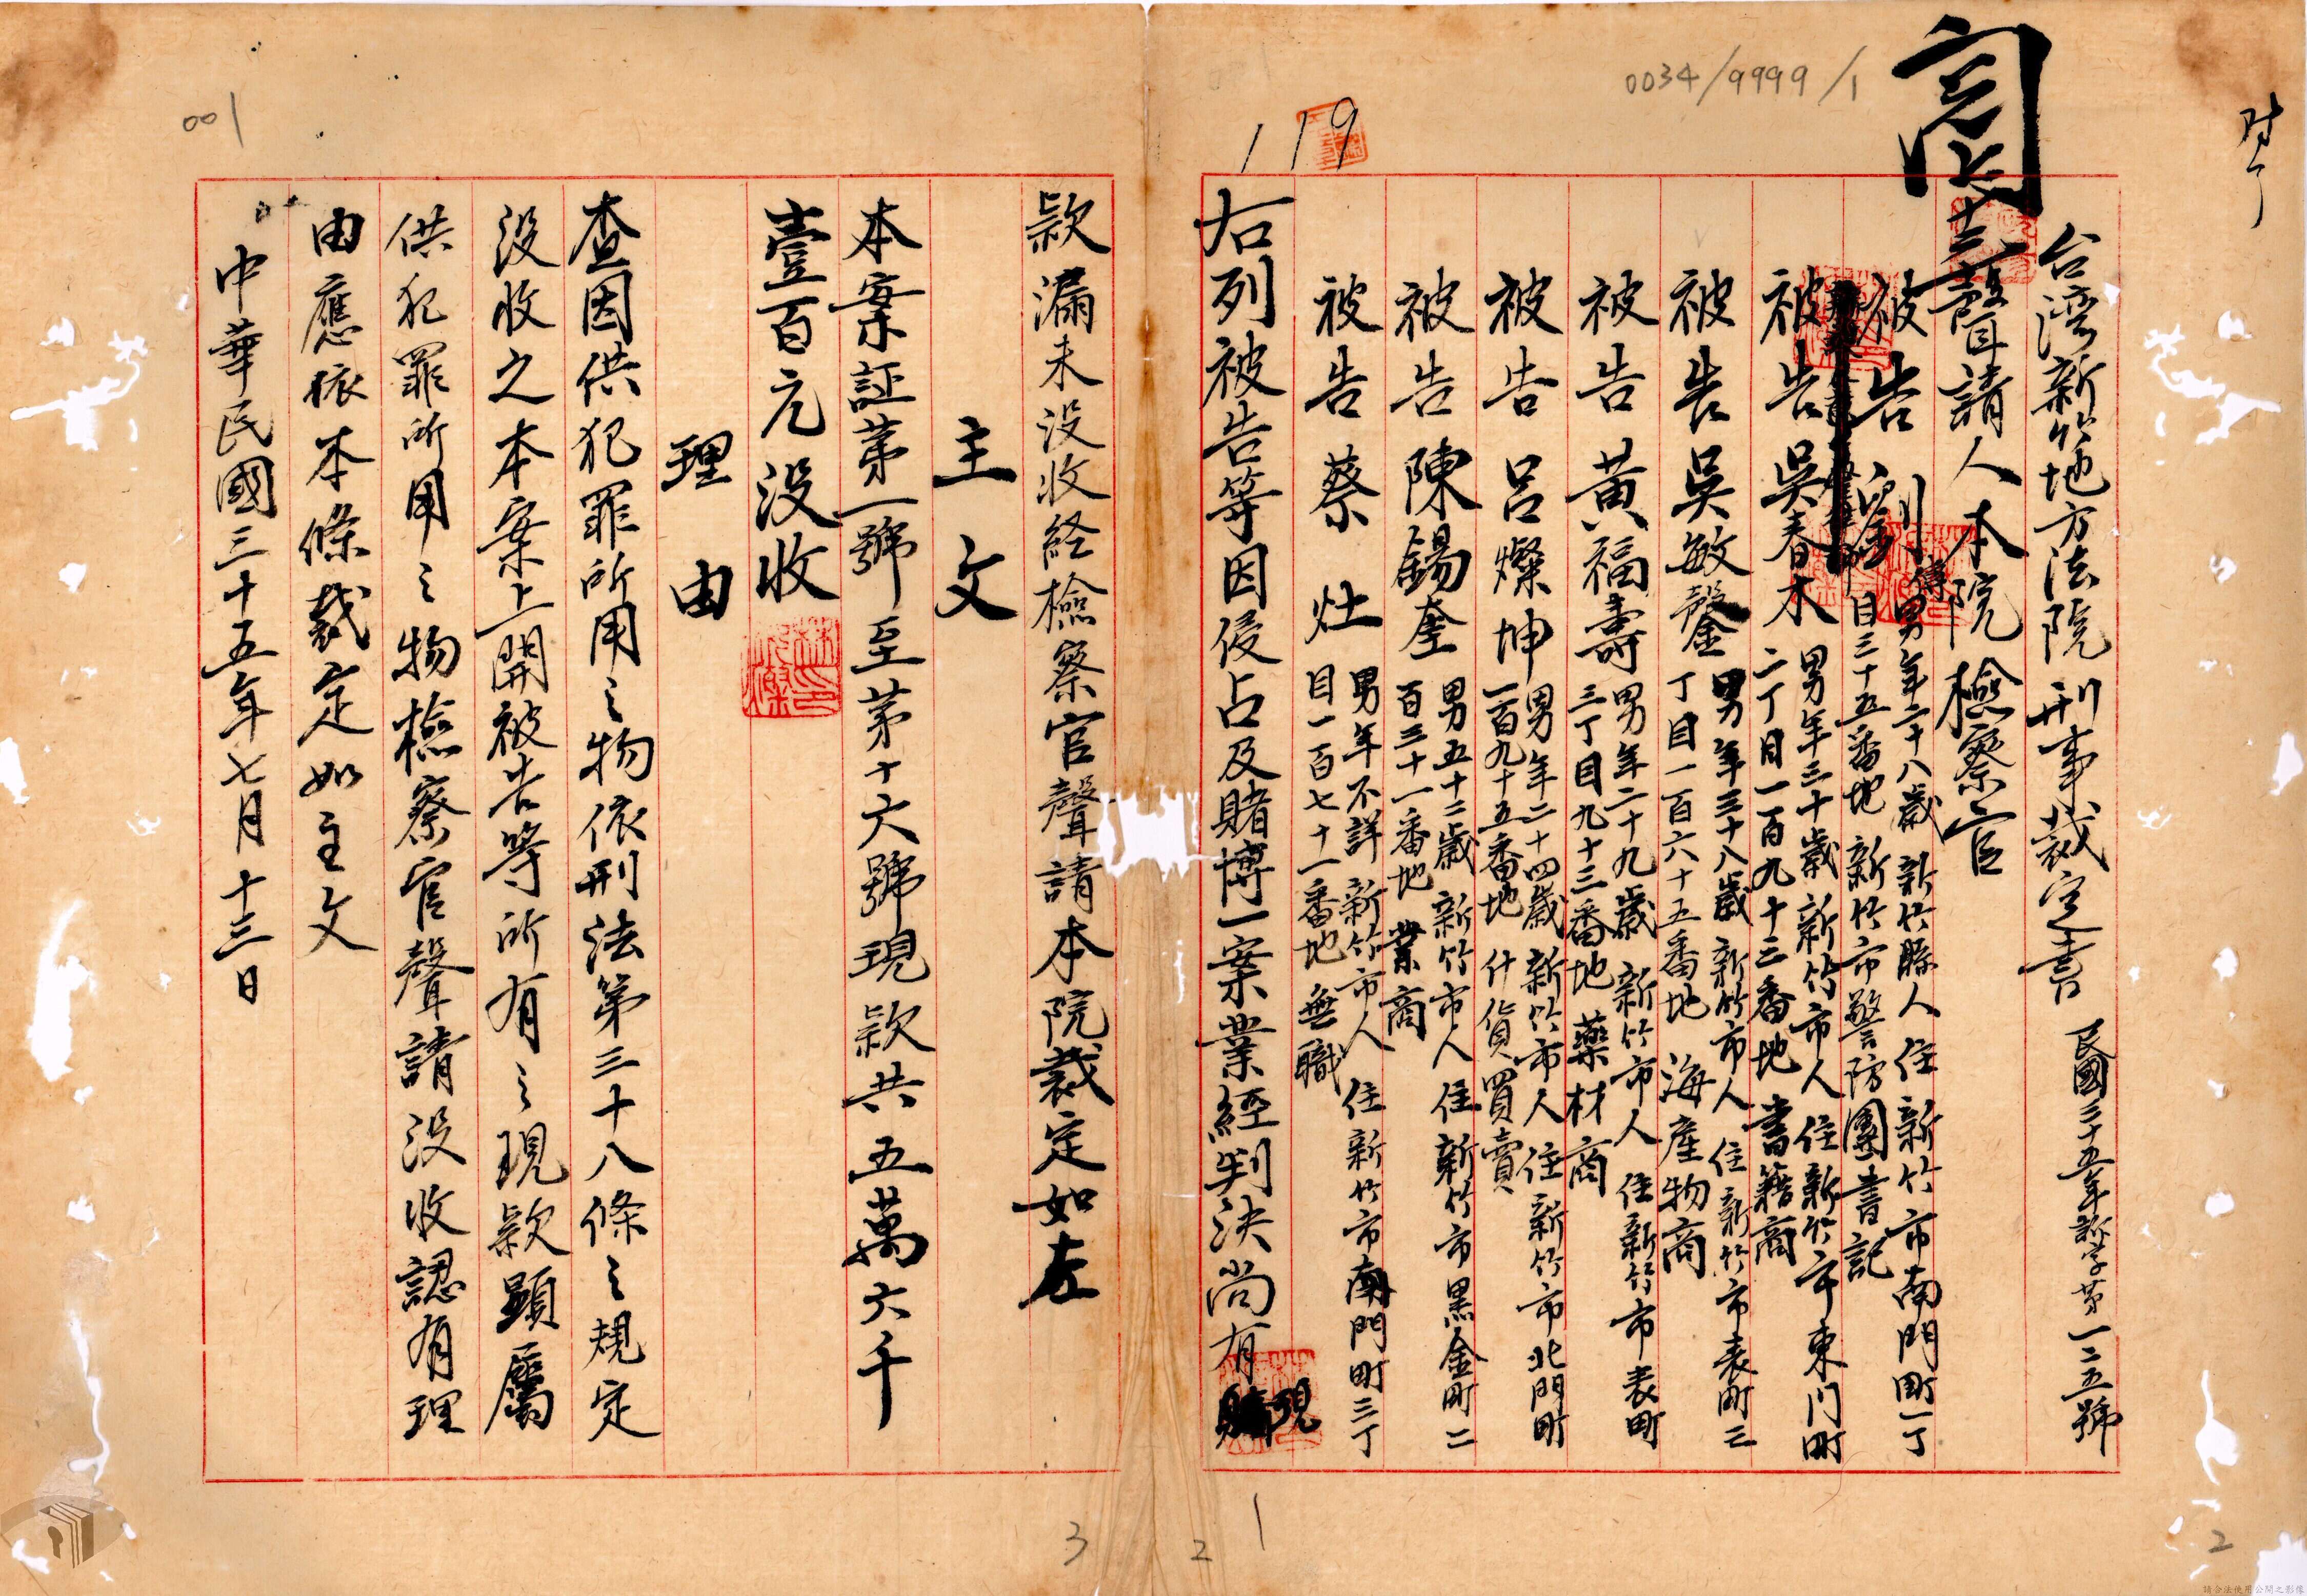 0034/9999/1
119
001
台湾新竹地方法院刑事裁定書 民國三十五年訴字第一二五號
聲請人 本院檢察官
被告 劉 男年二十八歲 新竹縣人 住新竹市南門町一丁
目三十五番地 新竹市警防團書記
被告 吳春木 男年三十歲 新竹市人 住新竹市東门町
二丁目一百九十三番地 書籍商
被告 吳敏鑾 男年三十八歲 新竹市人 住新竹市表町三
丁目一百六十五番地 海產物商
被告 黃福壽 男年二十九歲 新竹市人 住新竹市表町
三丁目九十三番地 藥材商
被告 呂燦坤 男年二十四歲 新竹市人 住新竹市北門町
一百九十五番地 什貨買賣
被告 陳錫奎 男五十二歲 新竹市人 住新竹市黑金町二
百三十一番地 業商
被告 蔡灶 男年不詳 新竹市人 住新竹市南門町三丁
目一百七十一番地 無職
右列被告等因侵占及賭博一案業經判決尚有現
款漏未没收経檢察官聲請本院裁定如左
主文
本案証第一號至第十六號現款共五萬六千
壹百元没收
理由
查因供犯罪所用之物依刑法第三十八條之規定
没收之本案上開被告等所有之現款顕屬
供犯罪所用之物檢察官聲請没收認有理
由應依本條裁定如主文
中華民國三十五年七月十三日
3
2
1
2
請合法使用公開之影像